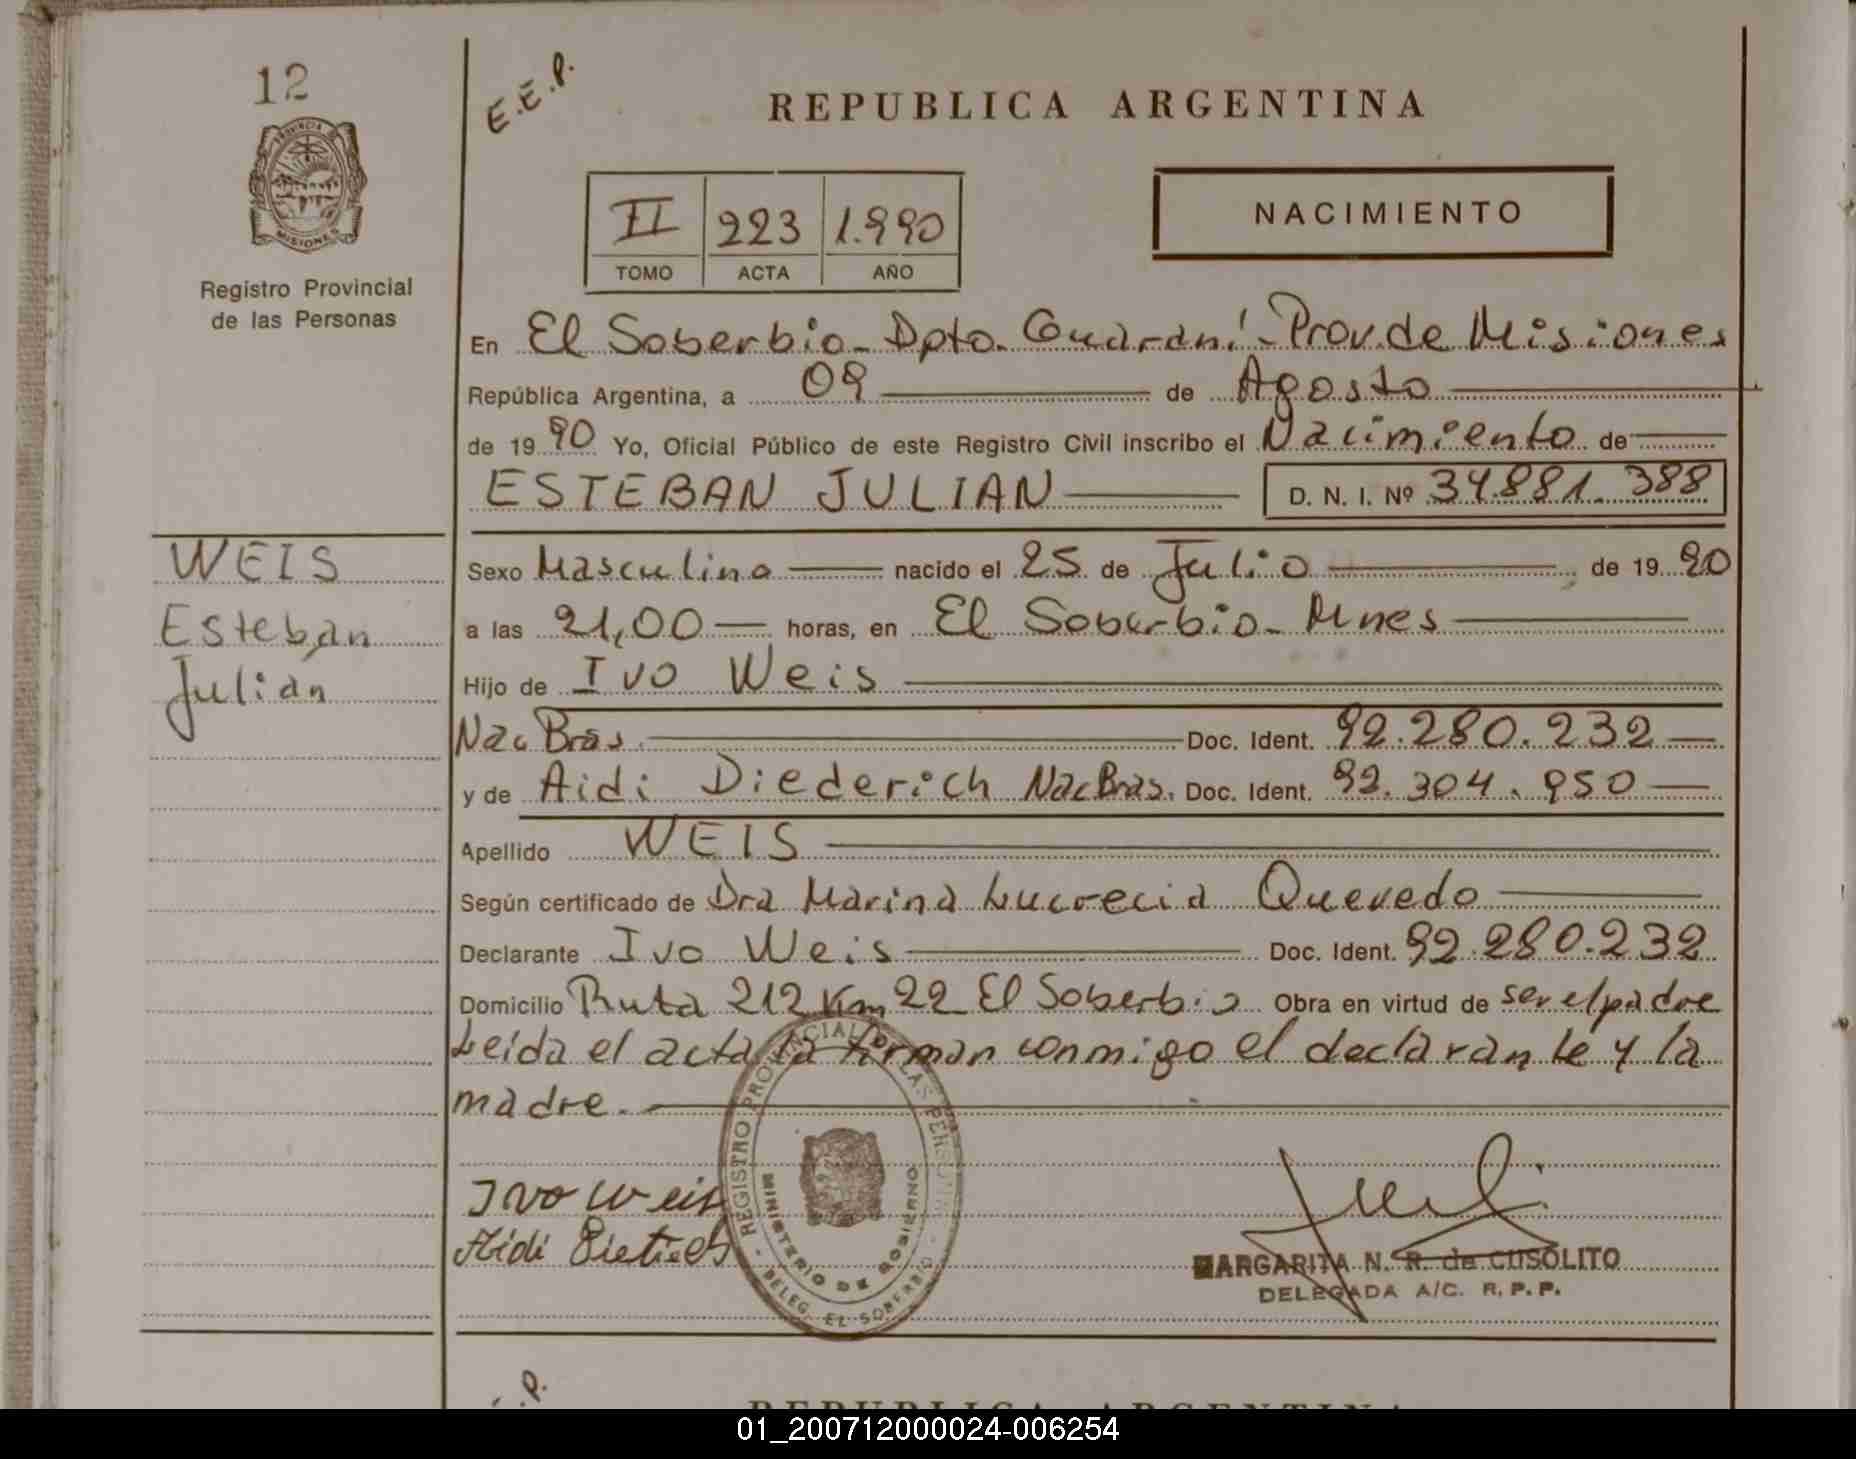 12
E.E.P.
REPUBLICA ARGENTINA
PROVINCIA DE
MISIONES
Registro Provincial
de las Personas
II 223 1.990
TOMO ACTA AÑO
NACIMIENTO
En El Soberbio - Dpto. Guaraní - Prov. de Misiones
República Argentina, a 09 de Agosto
de 19 90 Yo, Oficial Público de este Registro Civil inscribo el Nacimiento de
ESTEBAN JULIAN D. N. I. Nº 34.881.388
WEIS
Esteban
Julián
Sexo Masculino nacido el 25 de Julio de 19 90
a las 21,00 horas, en El Soberbio - Mnes
Hijo de Ivo Weis
Nac Bras. Doc. Ident. 92.280.232
y de Aidi Diederich Nac Bras. Doc. Ident. 92.304.950
Apellido WEIS
Según certificado de Dra Marina Lucrecia Quevedo
Declarante Ivo Weis Doc. Ident. 92.280.232
Domicilio Ruta 212 Km 22 El Soberbio Obra en virtud de ser el padre
Leída el acta la firman conmigo el declarante y la
madre.
Ivo Weis
Aidi
REGISTRO PROVINCIAL DE LAS PERSONAS
MINISTERIO DE GOBIERNO
DELEG. EL SOBERBIO
MARGARITA N. R. de CUSOLITO
DELEGADA A/C. R.P.P.
P.
REPUBLICA ARGENTINA
01_200712000024-006254